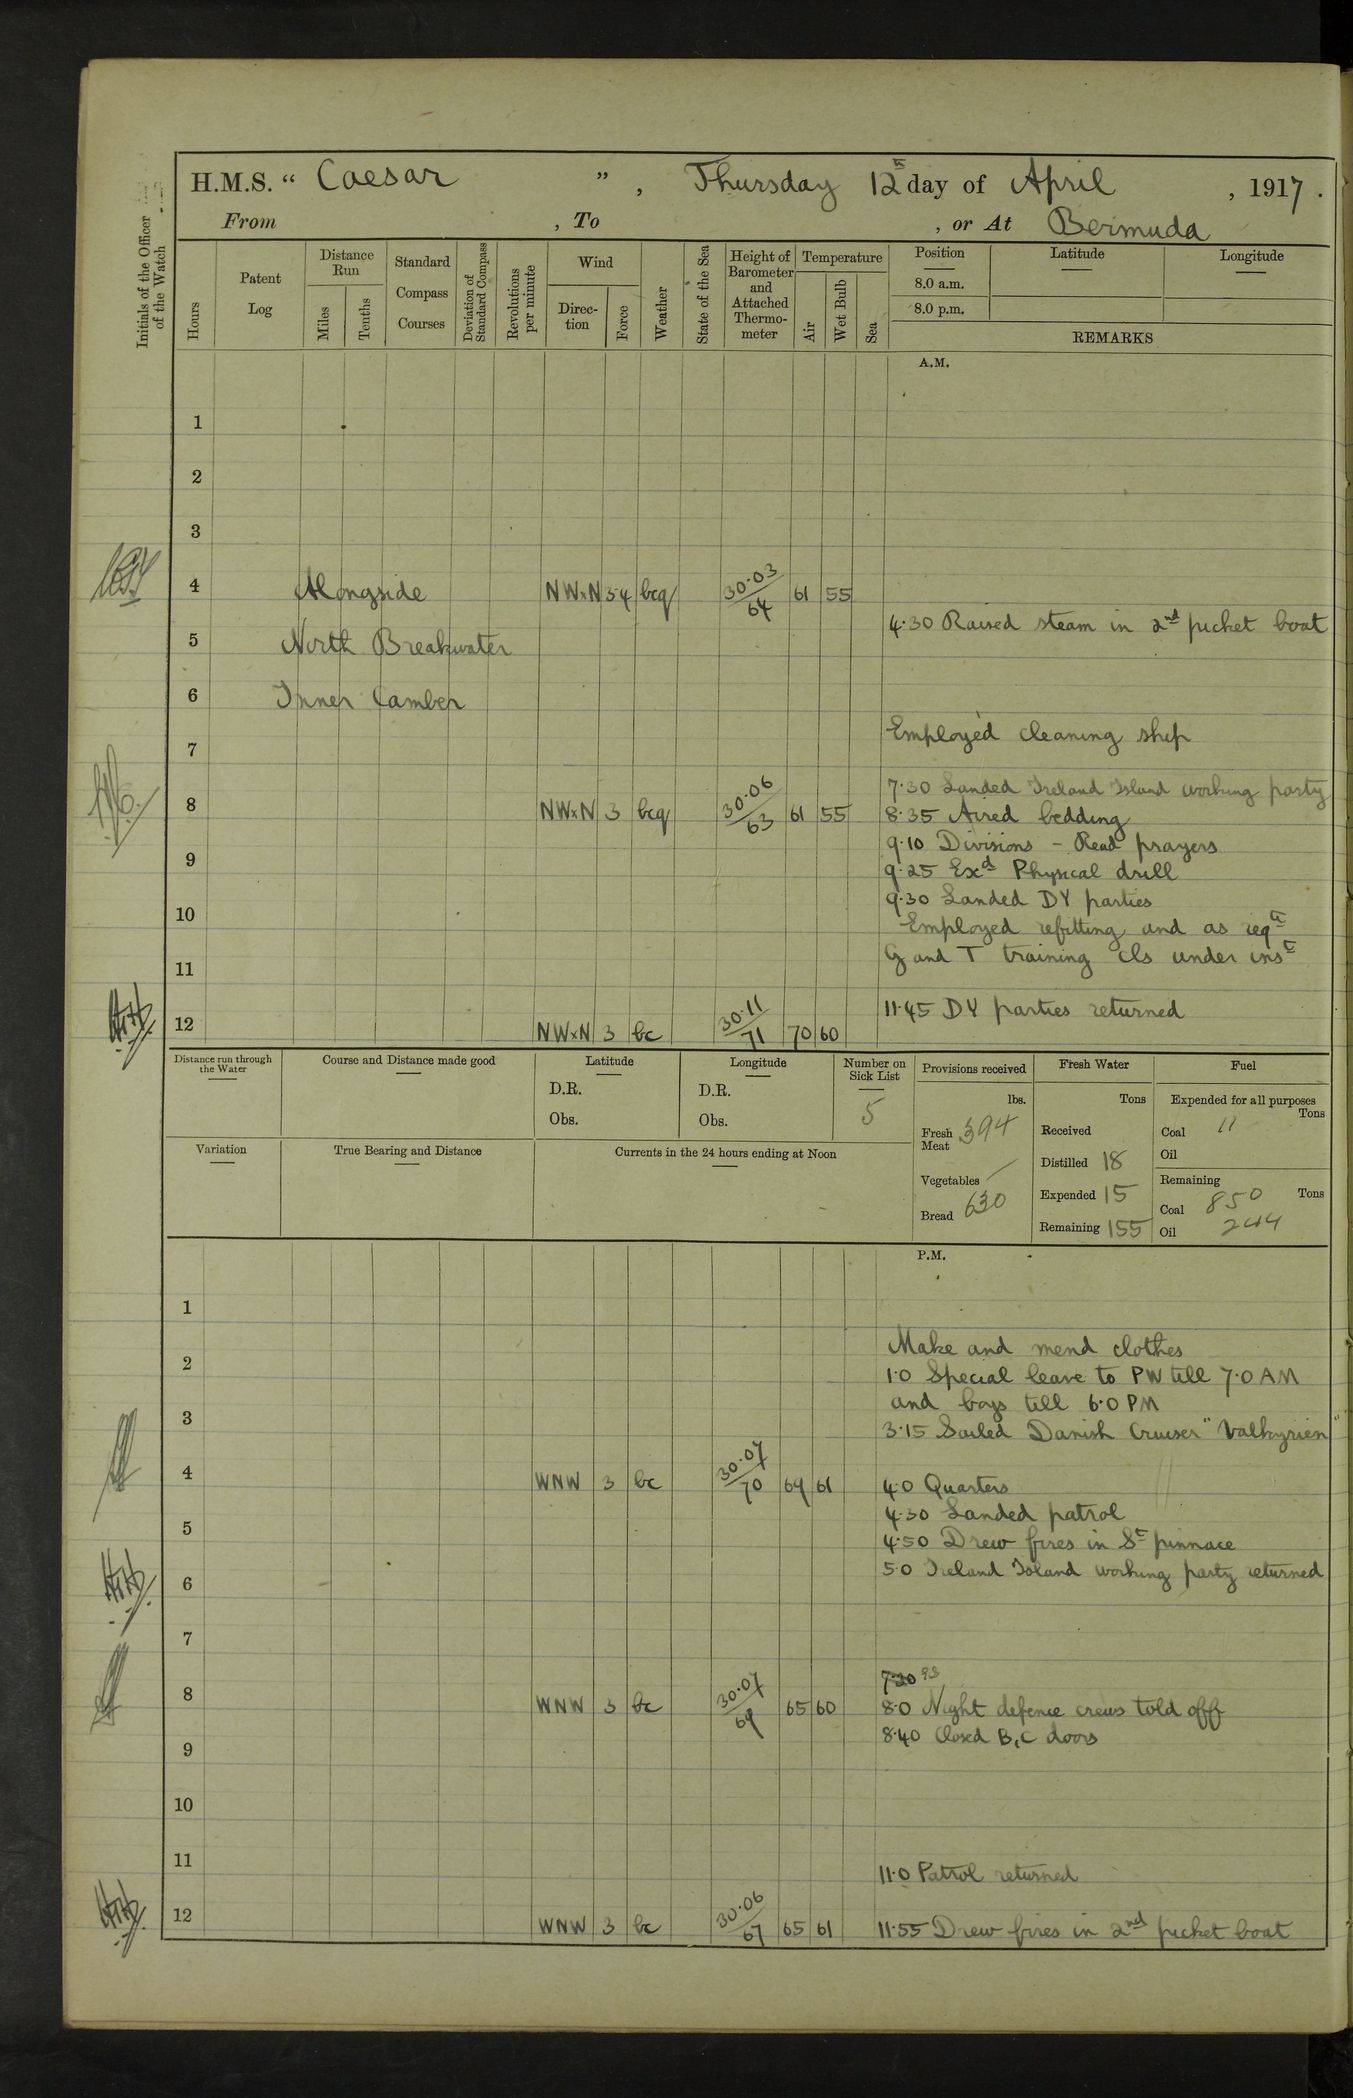 H.M.S. “ Caesar ” , Thursday 12th day of April , 1917 .
From , To , or At Bermuda
Initials of the Officer of the Watch
Hours
Patent Log
Distance Run
Miles
Tenths
Standard Compass Courses
Deviation of Standard Compass
Revolutions per minute
Wind
Direc- tion
Force
Weather
State of the Sea
Height of Barometer and Attached Thermo- meter
Temperature
Air
Wet Bulb
Sea
Position
8.0 a.m.
8.0 p.m.
Latitude
Longitude
REMARKS
A.M.
1
2
3
4 Alongside NWxN 3·4 bcq 30·03/64 61 55
4·30 Raised steam in 2nd picket boat
5 North Breakwater
6 Inner Camber
Employed cleaning ship
7
7·30 Landed Ireland Island working party
8 NWxN 3 bcq 30·06/63 61 55 8·35 Aired bedding
9·10 Divisions - Read prayers
9 9·25 Exd Physical drill
9·30 Landed DY parties
10 Employed refitting and as reqd
G and T training cls under inst
11
11·45 DY parties returned
12 NWxN 3 bc 30·11/71 70 60
Distance run through the Water
Course and Distance made good
Latitude
D.R.
Obs.
Longitude
D.R.
Obs.
Number on Sick List
5
Provisions received
lbs.
Fresh Meat 394
Vegetables /
Bread 630
Fresh Water
Tons
Received
Distilled 18
Expended 15
Remaining 155
Fuel
Expended for all purposes
Tons
Coal 11
Oil
Remaining
Tons
Coal 850
Oil 244
Variation
True Bearing and Distance
Currents in the 24 hours ending at Noon
P.M.
1
Make and mend clothes
2 1·0 Special leave to PW till 7·0 AM
and boys till 6·0 PM
3 3·15 Sailed Danish Cruiser "Valkyrien"
4 WNW 3 bc 30·07/70 69 61 4·0 Quarters
4·30 Landed patrol
5 4·50 Drew fires in St pinnace
5·0 Ireland Island working party returned
6
7
7·30
8 WNW 3 bc 30·07/69 65 60 8·0 Night defence crews told off
8·40 Closed B, C doors
9
10
11
11·0 Patrol returned
12 WNW 3 bc 30·06/67 65 61 11·55 Drew fires in 2nd picket boat